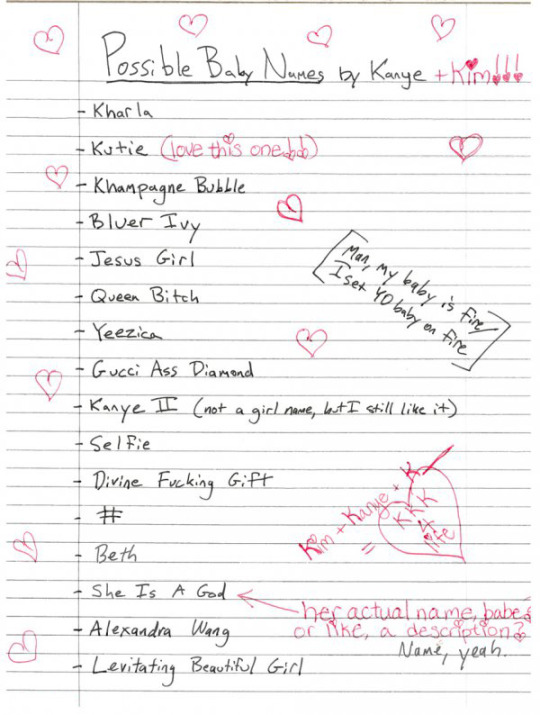 Possible Baby Names by Kanye + Kim!!!
- Kharla
- Kutie (love this one)
- Khampagne Bubble
- Bluer Ivy
- Jesus Girl
[Man, my baby is fire/
I set YO baby on fire]
- Queen Bitch
- Yeezica
- Gucci Ass Diamond
- Kanye II (not a girl name, but I still like it)
- Selfie
- Divine Fucking Gift
Kim + Kanye + K
= KKK
4
life
- #
- Beth
- She Is A God
her actual name, babe,
or like, a description?
Name, yeah.
- Alexandra Wang
- Levitating Beautiful Girl